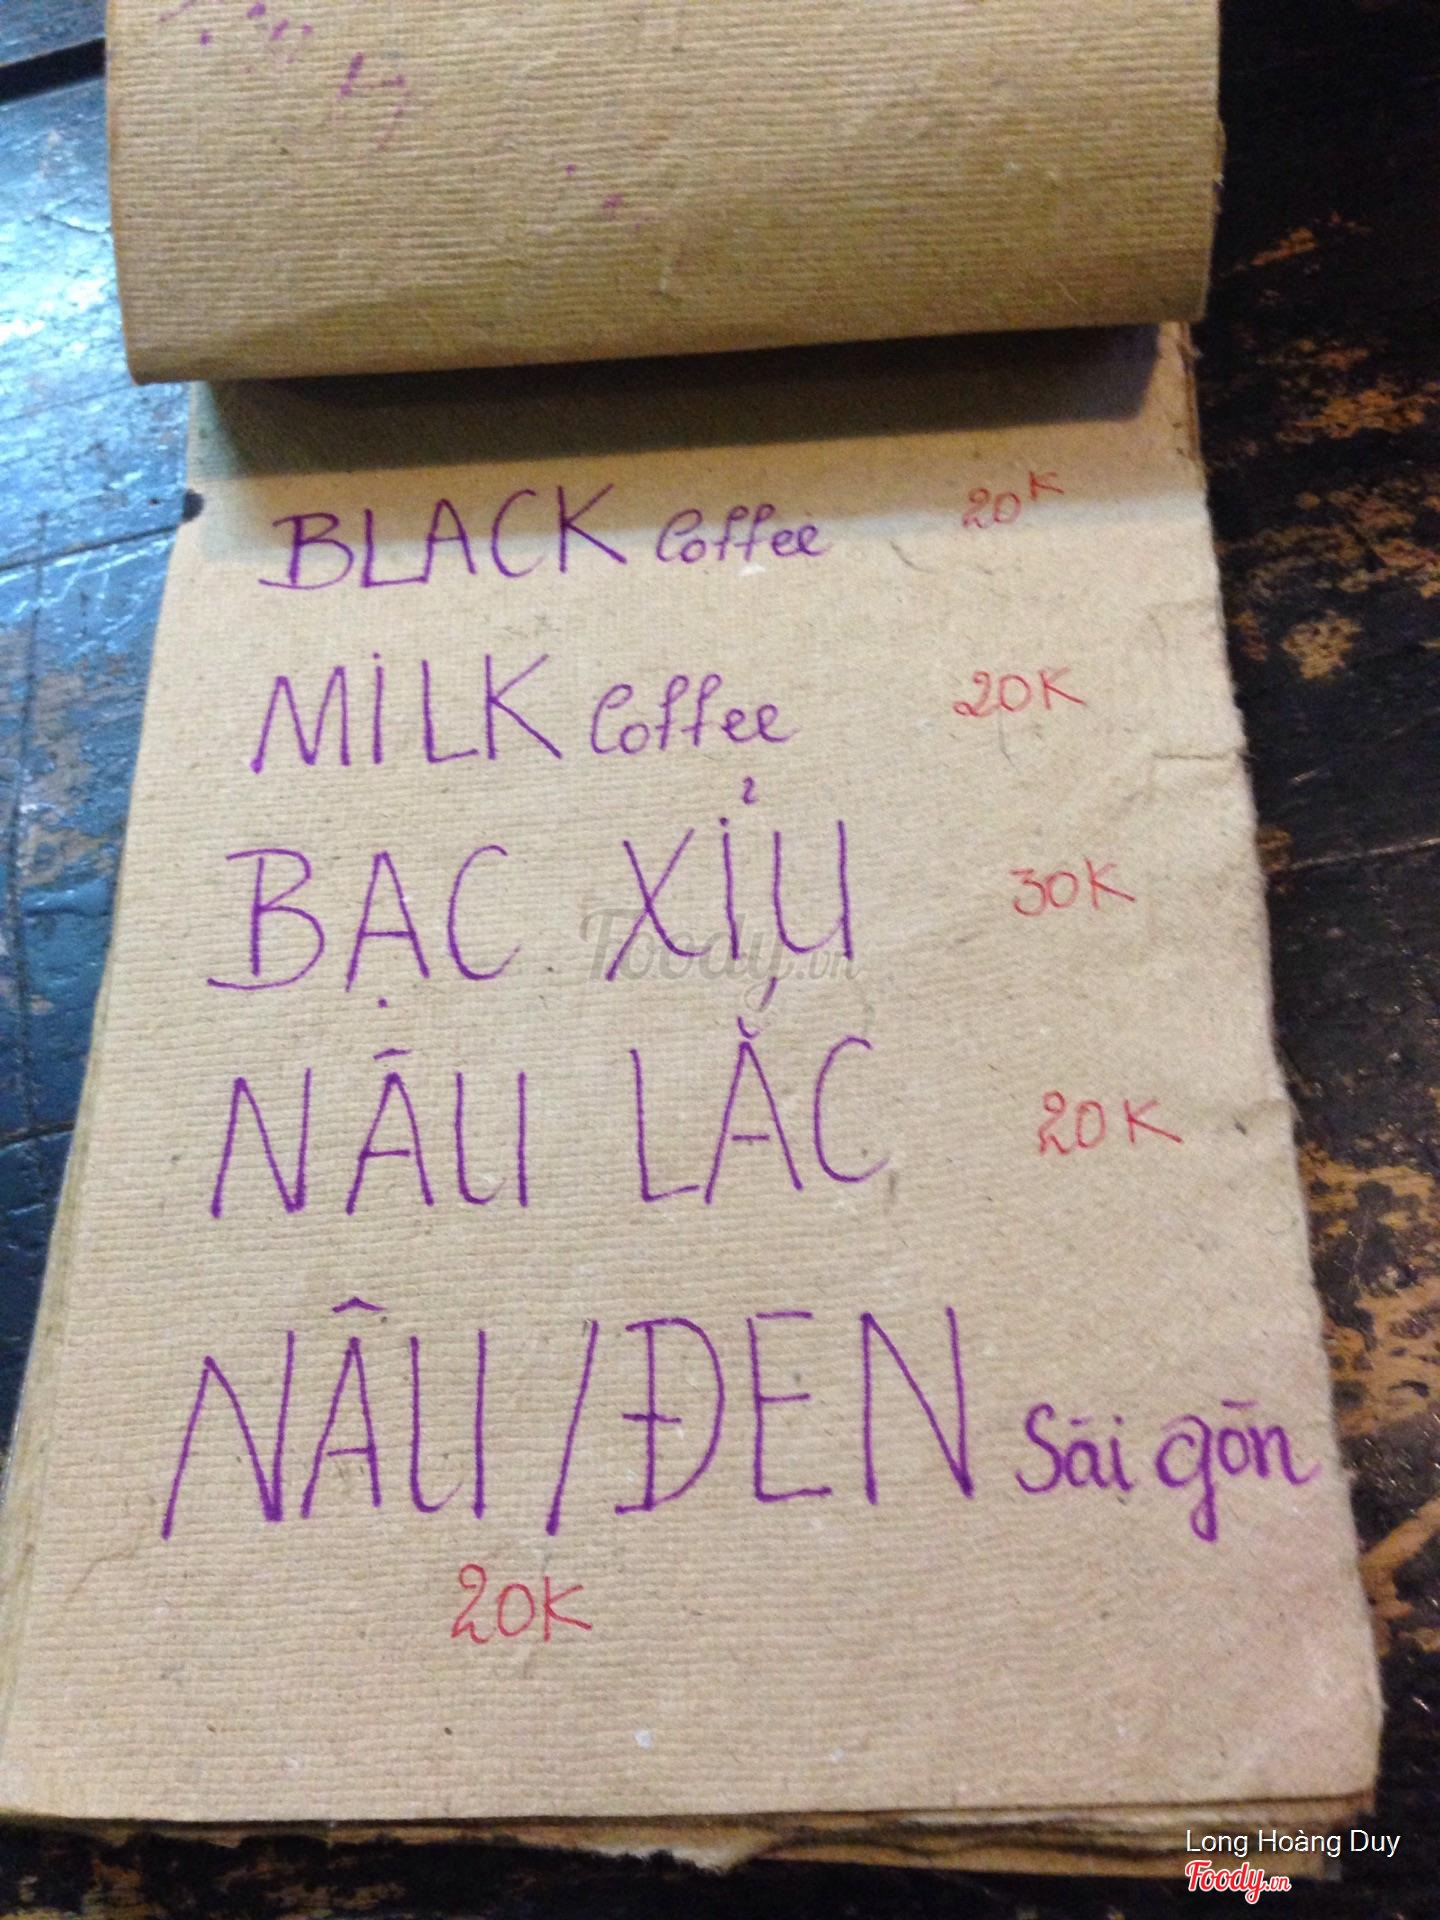 BLACK Coffee 20K
MiLK Coffee 20K
BẠC XỈU 30K
NÂU LẮC 20K
NÂU/ĐEN Sài gòn
20K
Foody.vn
Long Hoàng Duy
Foody.vn